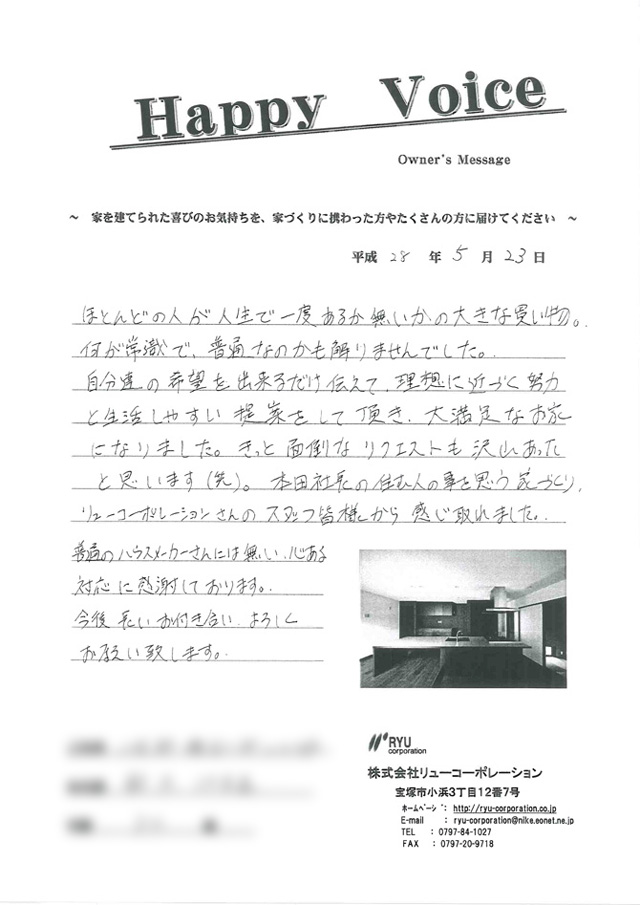 Happy Voice
Owner's Message
～ 家を建てられた喜びのお気持ちを、家づくりに携わった方やたくさんの方に届けてください ～
平成 28 年 5 月 23 日
ほとんどの人が人生で一度あるか無いかの大きな買い物。
何が常識で、普通なのかも解りませんでした。
自分達の希望を出来るだけ伝えて、理想に近づく努力
と生活しやすい提案をして頂き、大満足なお家
になりました。きっと面倒なリクエストも沢山あった
と思います(笑)。本田社長の住む人の事を思う家づくり、
リューコーポレーションさんのスタッフ皆様から感じ取れました。
普通のハウスメーカーさんには無い、心ある
対応に感謝しております。
今後長いお付き合い、よろしく
お願い致します。
RYU
corporation
株式会社リューコーポレーション
宝塚市小浜3丁目12番7号
ホームページ: http://ryu-corporation.co.jp
E-mail : ryu-corporation@nike.eonet.ne.jp
TEL : 0797-84-1027
FAX : 0797-20-9718